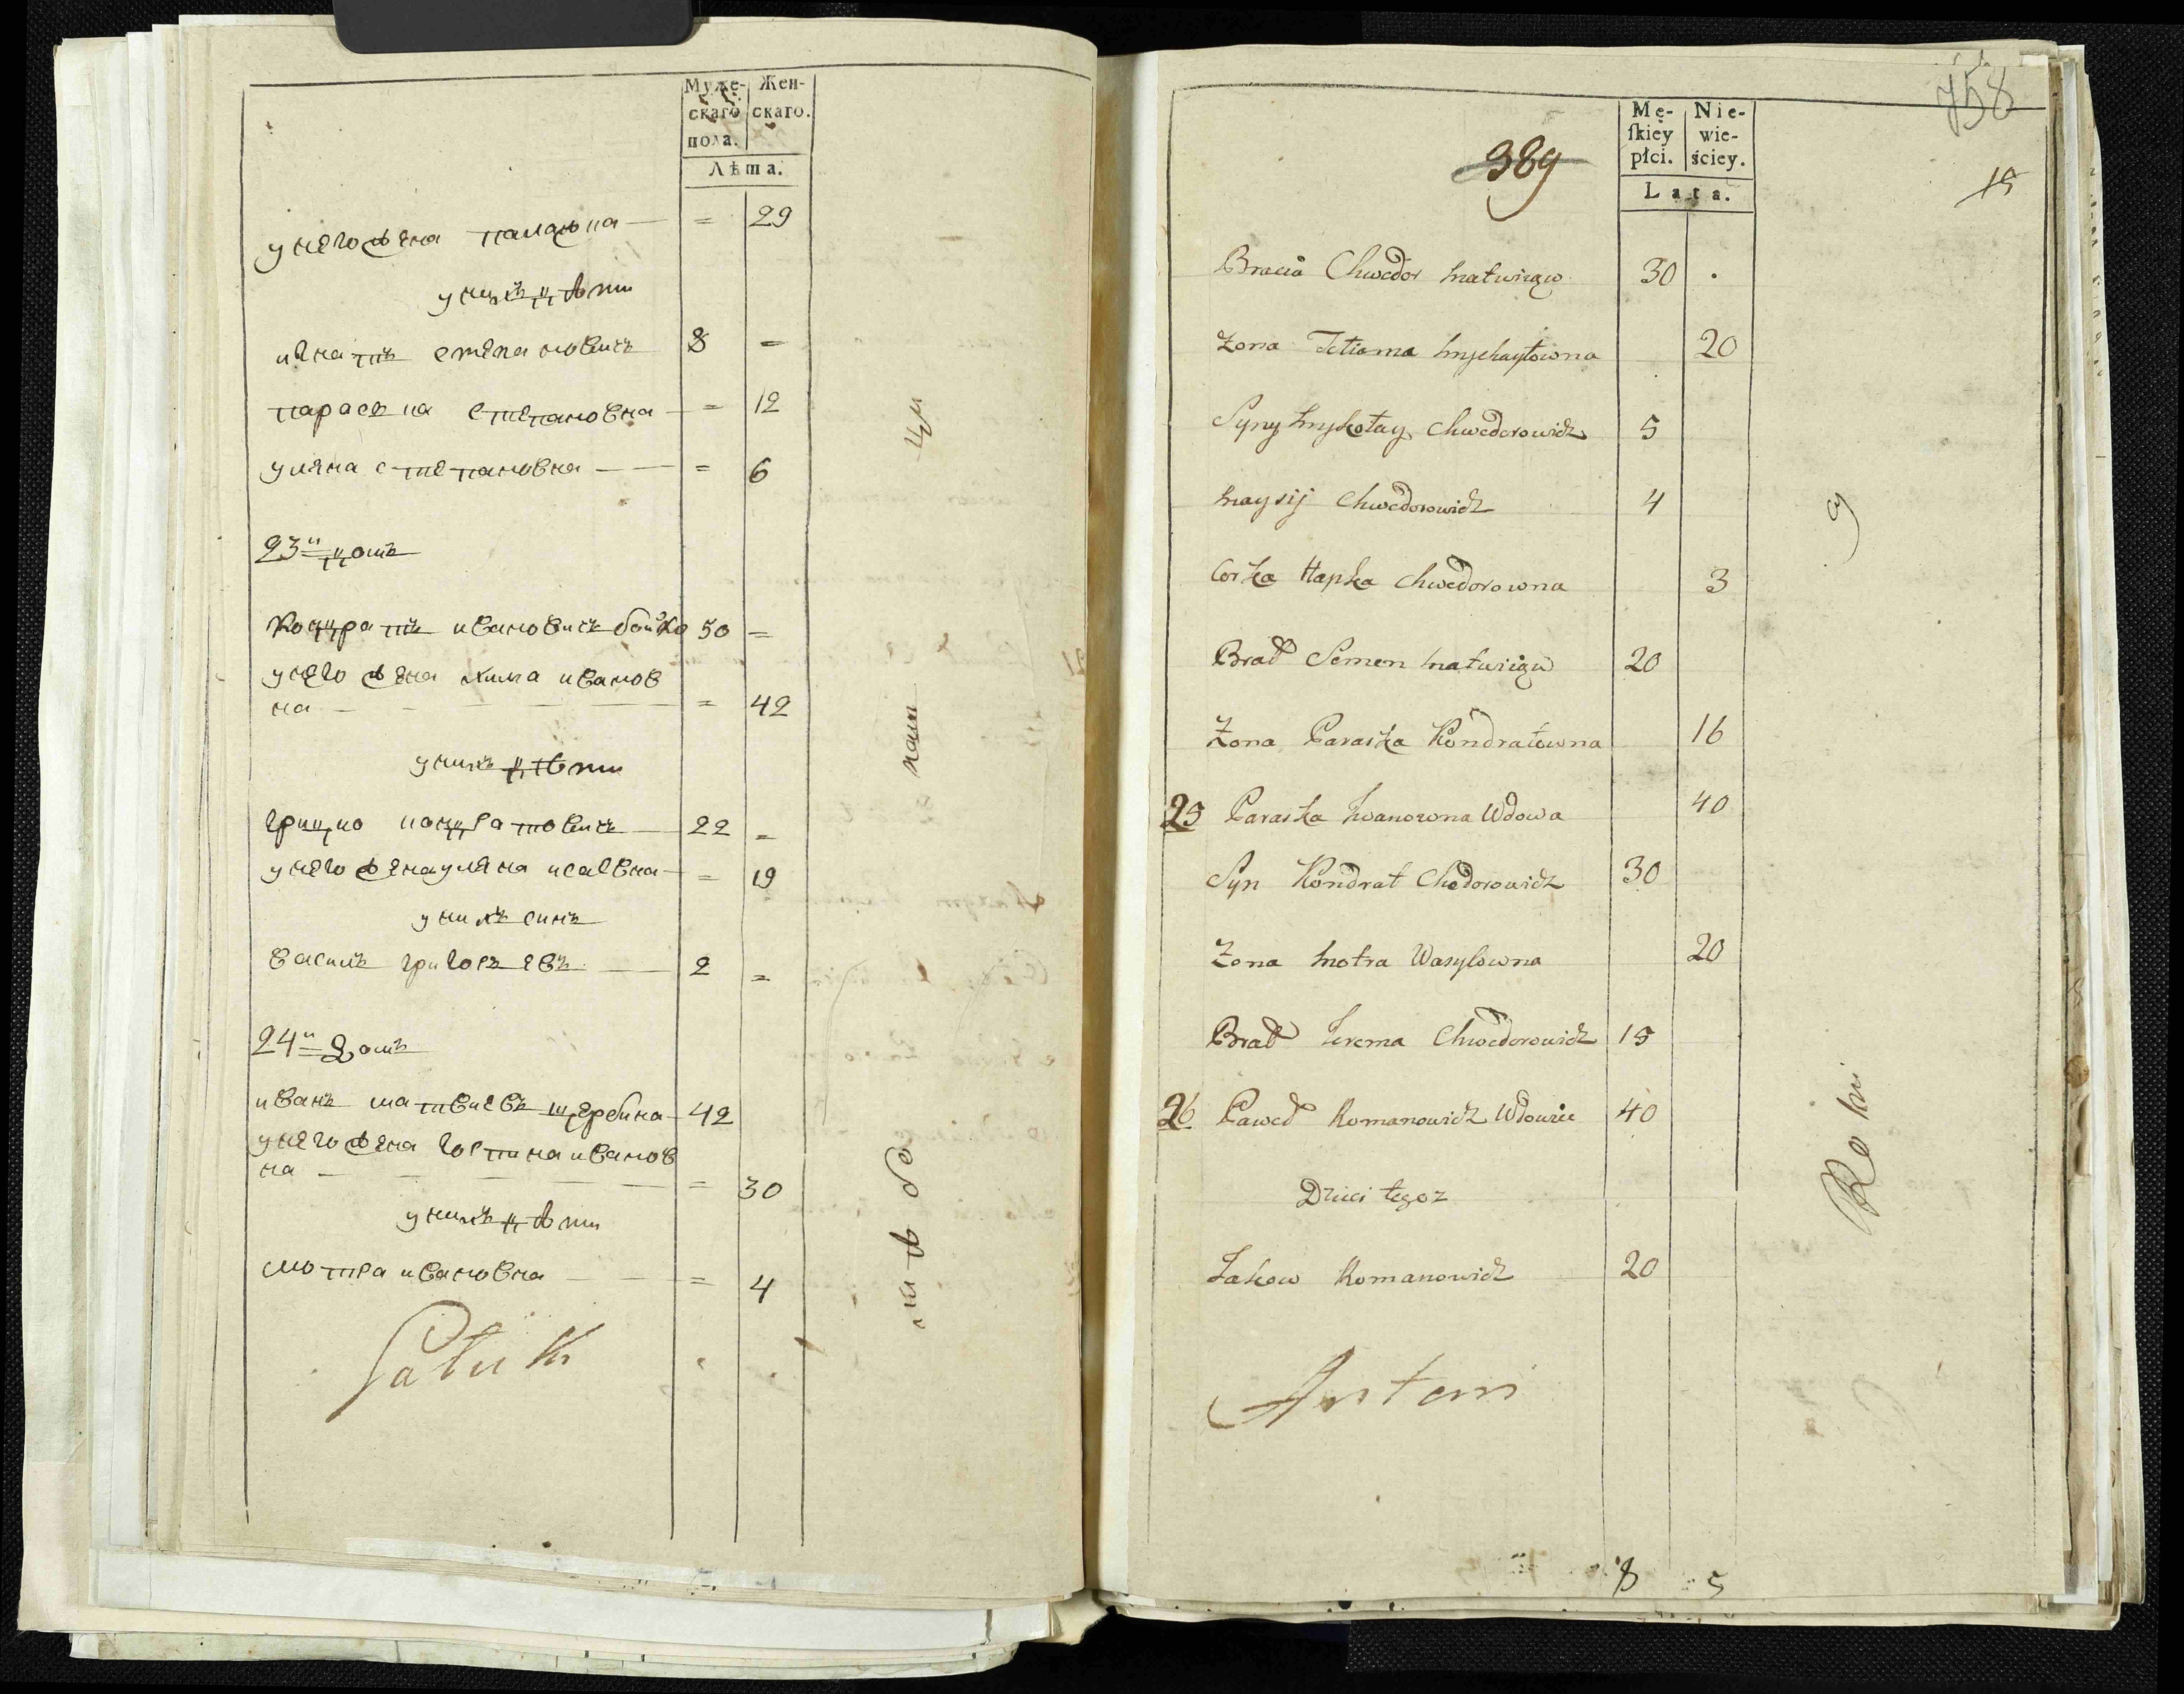 Муже-
скаго
пола.
Жен-
скаго.
Лѣта.
у него жена палажка — = 29
у нихъ дѣти
игнатъ степановичъ 8 =
параска степановна — = 12
уляна степановна — — = 6
23й домъ
Кондратъ ивановичъ бойко 50 =
у него жена хима иванов
на — — — — = 42
у нихъ дѣти
грицко кондратовичъ — 22 =
у него жена уляна исаевна — = 19
у нихъ синъ
василъ григоръевъ — 2 =
24й домъ
иванъ матвиевъ щербина — 42
у него жена иванов
на — — — — = 30
у нихъ дѣти
мотра ивановна — — = 4
758
Mę-
ſkiey
płci.
Nie-
wie-
ściey.
Lata.
389
15
Bracia Chwedor Matwiiow 30 .
Zona Tetianna Mychayłowna 20
Syny Mykołay Chwedorowicz 5
Maysij Chwedorowicz 4
Corka Hapka Chwedorowna 3
Brat Semen Matwiiow 20
Zona Paraska Kondratowna 16
25 Paraska Iwanowna Wdowa 40
Syn Kondrat Chedorowicz 30
Zona Motra Wasylowna 20
Brat Jerema Chwedorowicz 15
26 Paweł Romanowicz Wdowiec 40
Dzieci tegoz
Jakow Romanowicz 20
Antoni
8 5